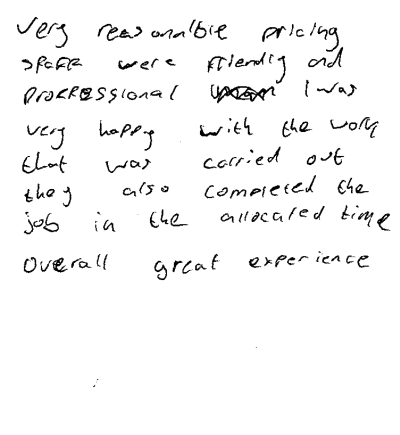 Very reasonable pricing
staff were friendly and
professional I was
very happy with the work
that was carried out
they also completed the
job in the allocated time
Overall great experience